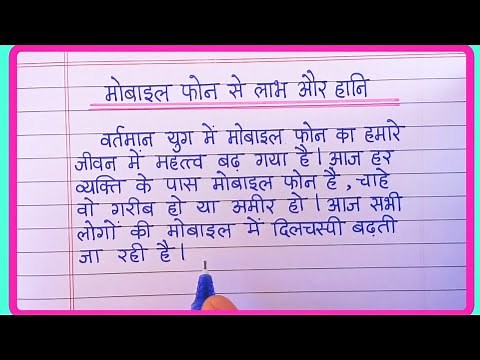 मोबाइल फोन से लाभ और हानि
वर्तमान युग में मोबाइल फोन का हमारे
जीवन में महत्त्व बढ़ गया है। आज हर
व्यक्ति के पास मोबाइल फोन है , चाहे
वो गरीब हो या अमीर हो। आज सभी
लोगों की मोबाइल में दिलचस्पी बढ़ती
जा रही है।